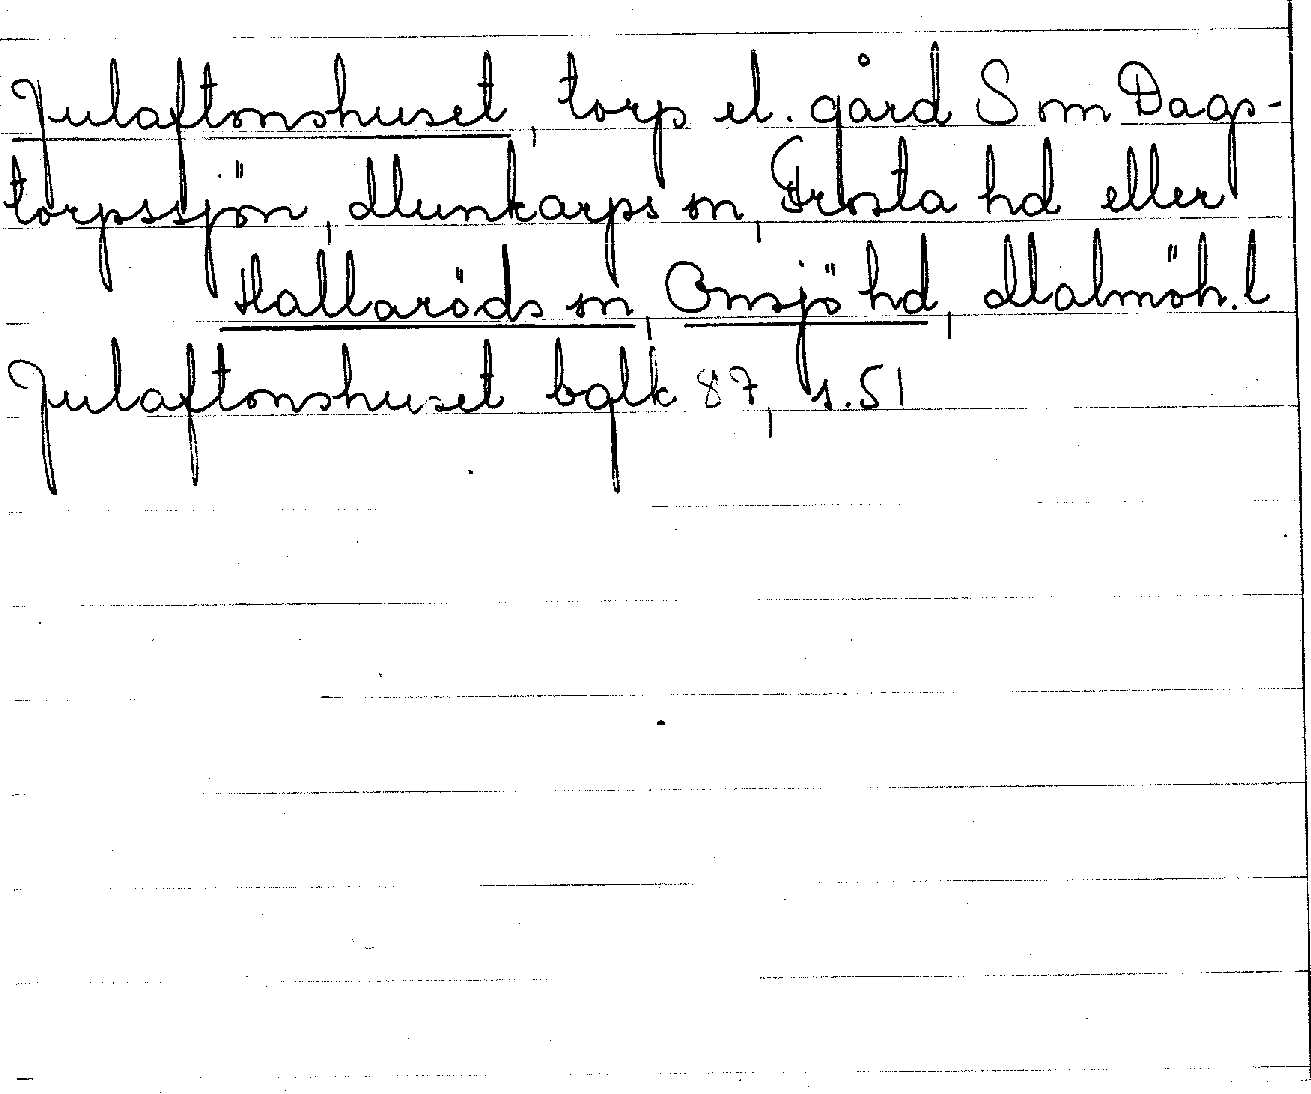 Julaftonshuset, torp el. gård S om Dags-
torpssjön, Munkarps sn, Frosta hd eller
Hallaröds sn, Onsjö hd, Malmöh. l
Julaftonshuset bglk 87, s. 51